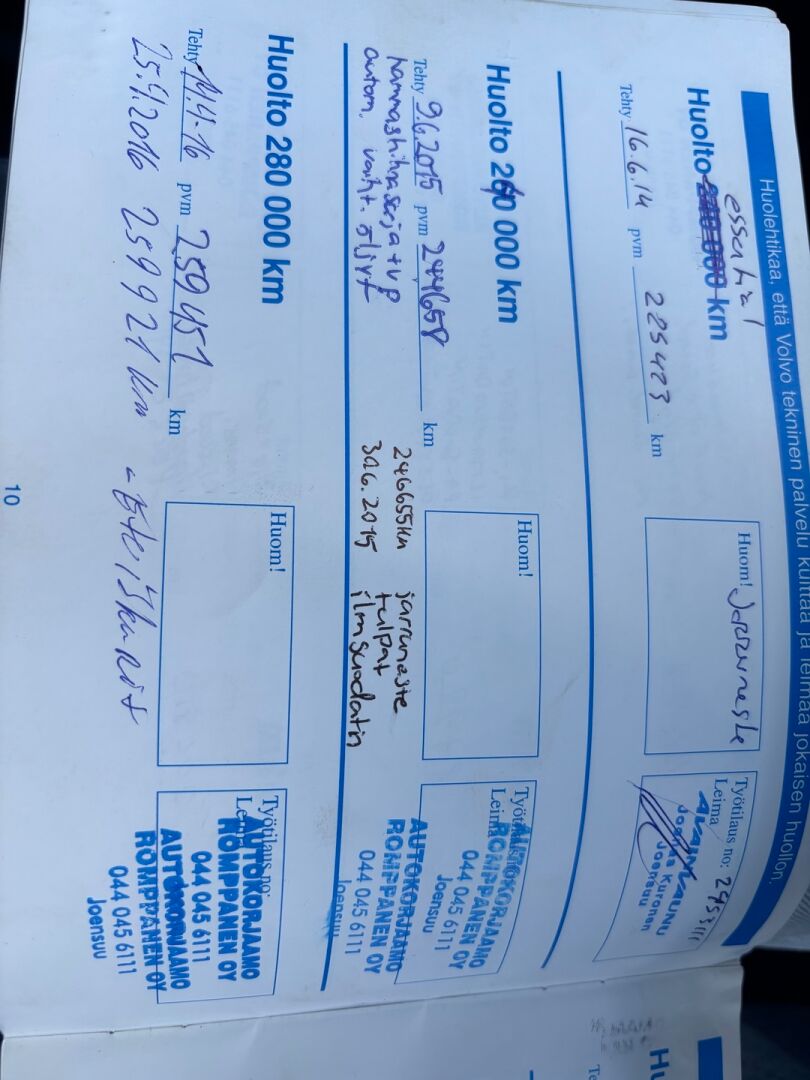 Huolehtikaa, että Volvo tekninen palvelu kuittaa ja leimaa jokaisen huollon.
essential
Huolto 220 000 km
Tehty 16.6.14 pvm 225423 km
Huom! Jarruneste
Työtilaus no: 2953111
Leima
Joonas Kuronen
Joensuu
Huolto 240 000 km
Tehty 9.6.2015 pvm 244658 km
hammashihnasarja + vp
autom. vaiht. öljyt
Huom!
246655km jarruneste
30.6.2015 tulpat
ilmsuodatin
Leima
AUTOKORJAAMO
ROMPPANEN OY
044 045 6111
Joensuu
AUTOKORJAAMO
ROMPPANEN OY
044 045 6111
Joensuu
Huolto 280 000 km
Tehty 11.4-16 pvm 259451 km
25.4.2016 259921 km - Eteiskurit
Huom!
Työtilaus no:
Leima
AUTOKORJAAMO
ROMPPANEN OY
044 045 6111
AUTOKORJAAMO
ROMPPANEN OY
044 045 6111
Joensuu
10
Hu
Te